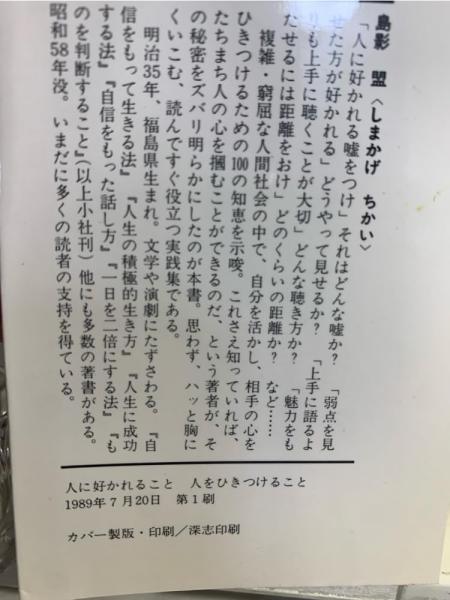 島影 盟〈しまかげ ちかい〉
「人に好かれる嘘をつけ」それはどんな嘘か? 「弱点を見
せた方が好かれる」どうやって見せるか? 「上手に語るよ
りも上手に聴くことが大切」どんな聴き方か? 「魅力をも
たせるには距離をおけ」どのくらいの距離か? など……
複雑・窮屈な人間社会の中で、自分を活かし、相手の心を
ひきつけるための100の知恵を示唆。これさえ知っていれば、
たちまち人の心を摑むことができるのだ、という著者が、そ
の秘密をズバリ明らかにしたのが本書。思わず、ハッと胸に
くいこむ、読んですぐ役立つ実践集である。
明治35年、福島県生まれ。文学や演劇にたずさわる。『自
信をもって生きる法』『人生の積極的生き方』『人生に成功
する法』『自信をもった話し方』『一日を二倍にする法』『も
のを判断すること』(以上小社刊)他にも多数の著書がある。
昭和58年没。いまだに多くの読者の支持を得ている。
人に好かれること 人をひきつけること
1989年7月20日 第1刷
カバー製版・印刷/深志印刷